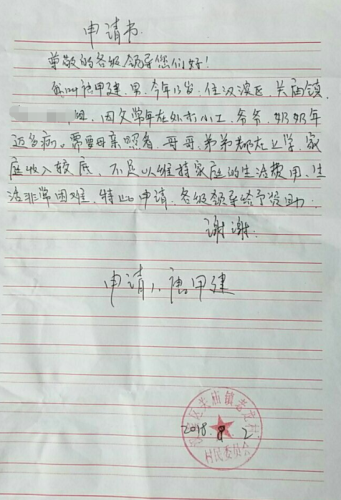 申请书
尊敬的各级领导您们好！
我叫唐甲建，男，今年13岁，住汉滨区，关庙镇，
因父常年在外打小工，爷爷，奶奶年
迈多病。需要母亲照看，哥哥弟弟都在上学，家
庭收入较底，不足以维持家庭的生活费用，生
活非常困难，特此申请，各级领导给予资助。
谢谢.
申请人，唐甲建
区关庙镇
2018 2
村民委员会